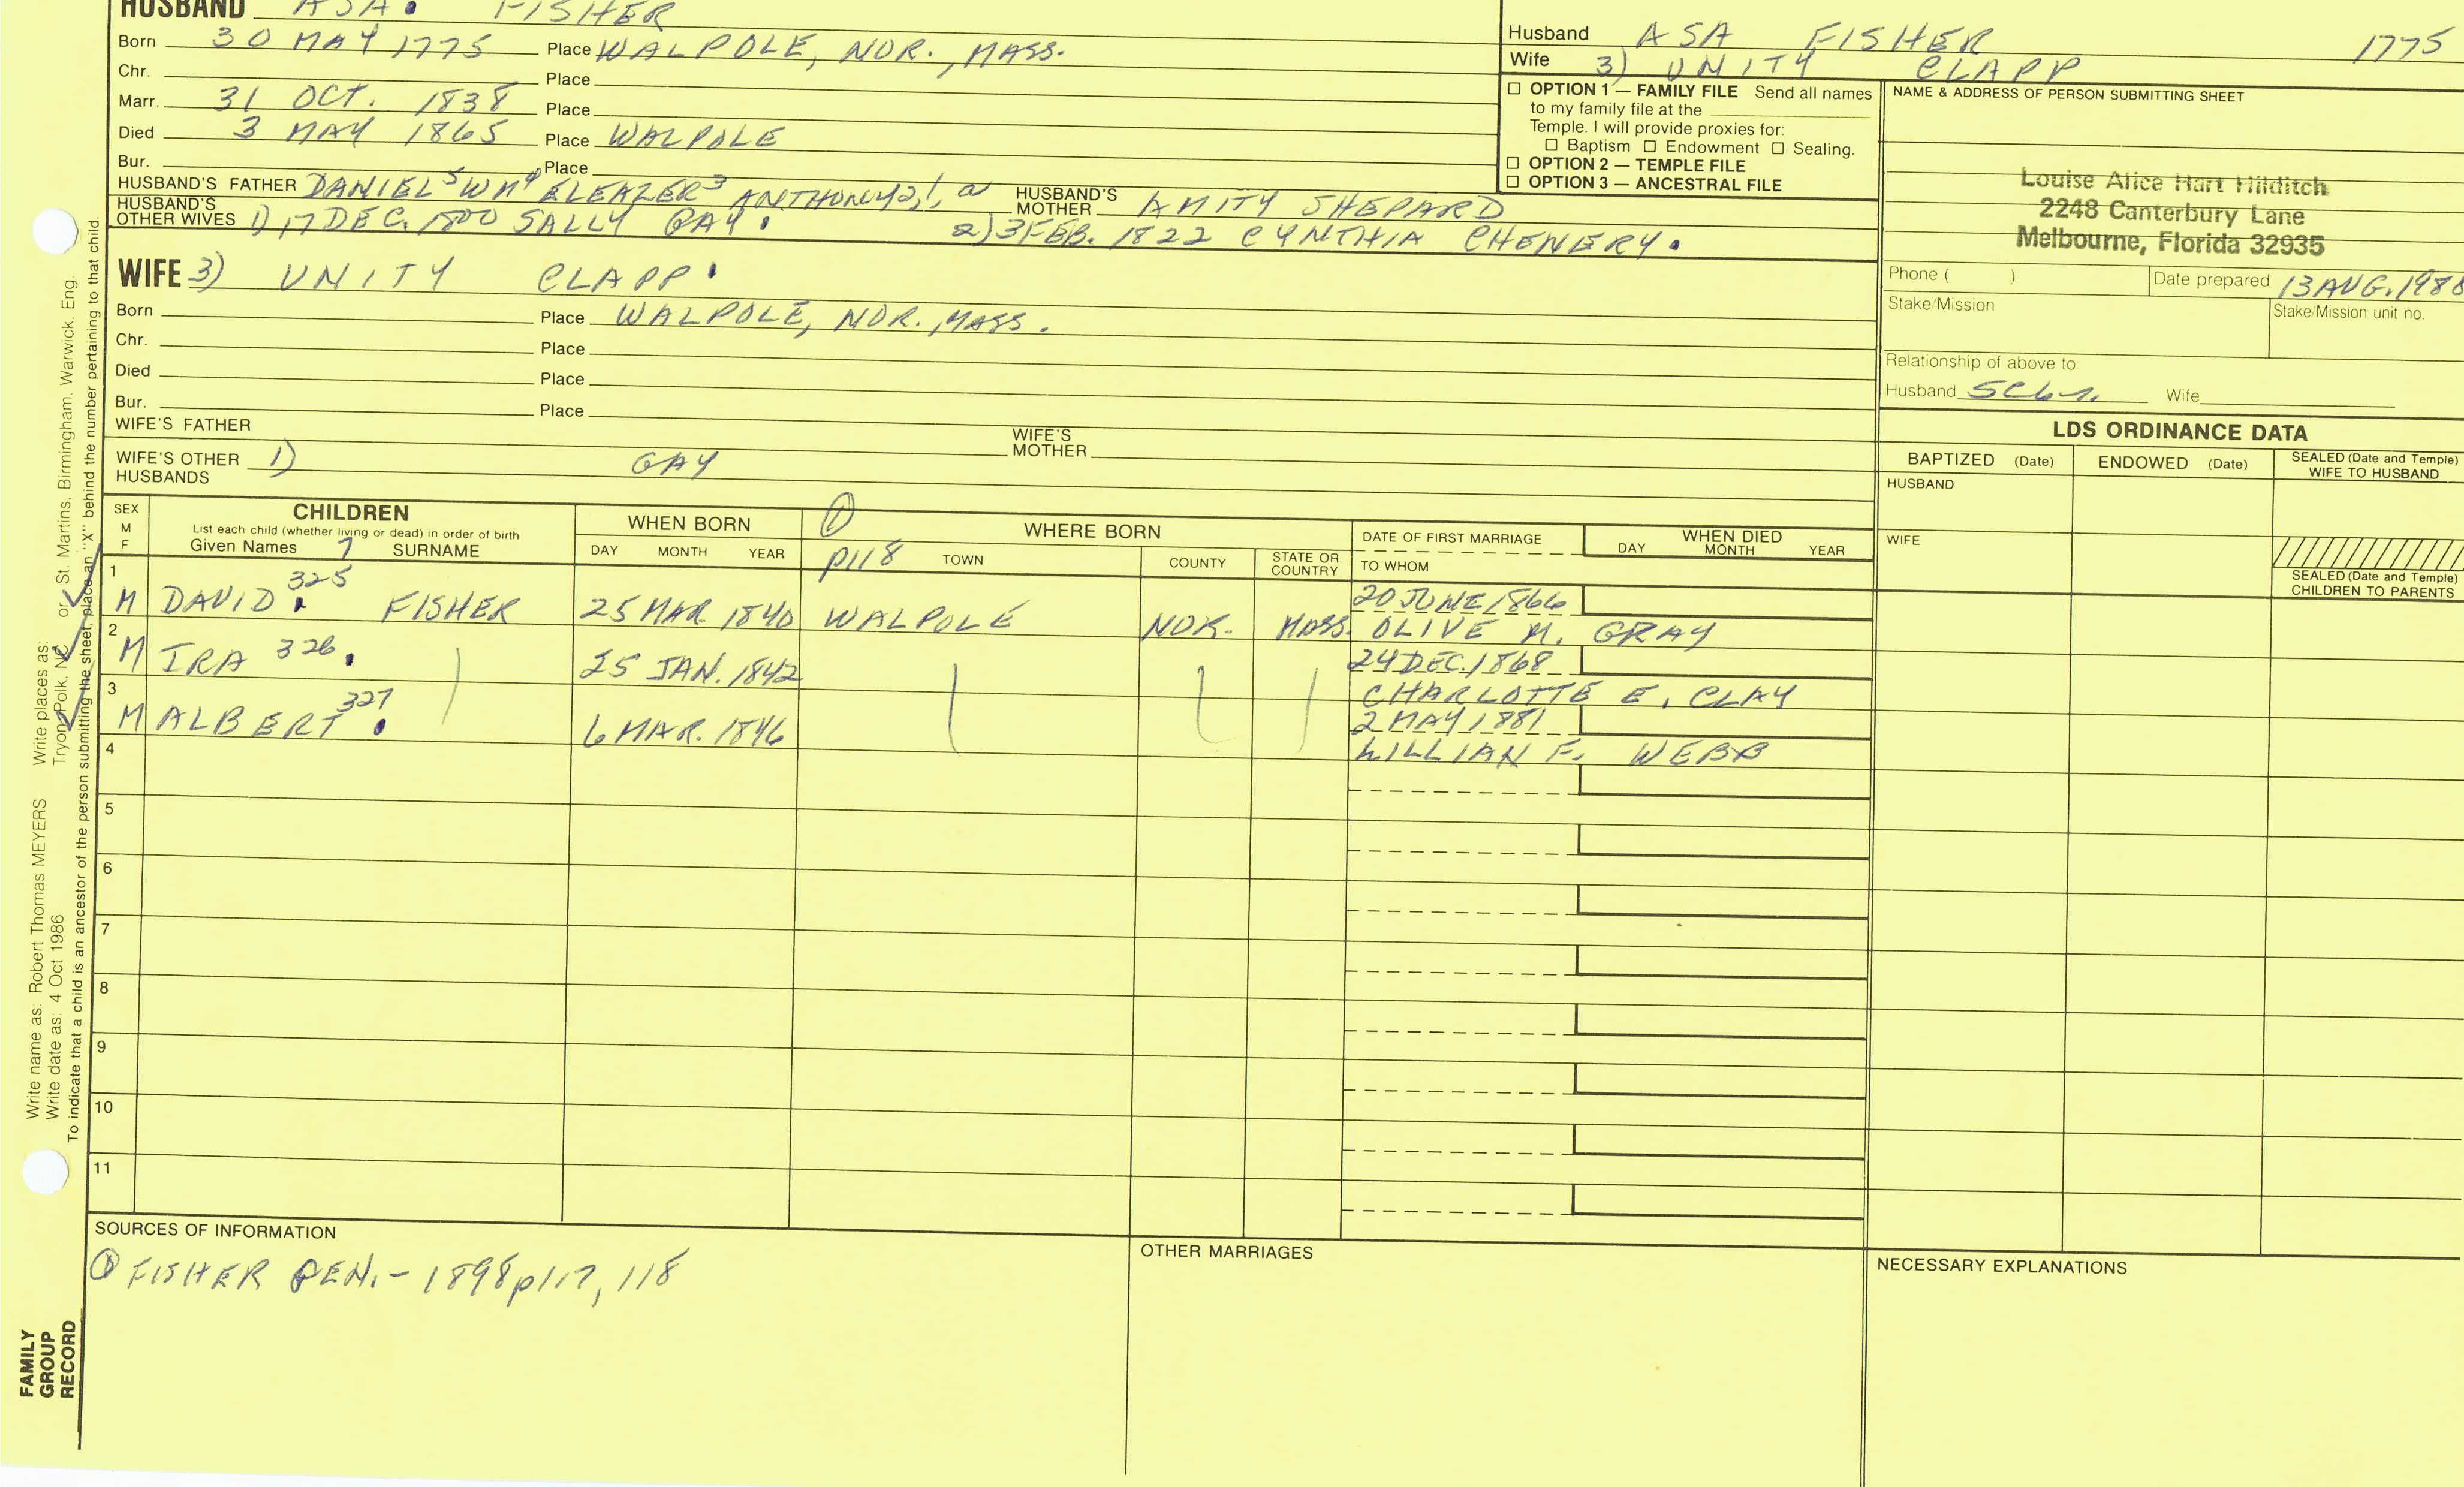 HUSBAND ASA. FISHER
Born 30 MAY 1775 Place WALPOLE, NOR., MASS.
Chr. Place
Marr. 31 OCT. 1838 Place
Died 3 MAY 1865 Place WALPOLE
Bur. Place
HUSBAND'S FATHER DANIEL5 WM4 ELEAZER3 ANTHONY2,1, a HUSBAND'S MOTHER AMITY SHEPARD
HUSBAND'S OTHER WIVES 1) 17 DEC. 1800 SALLY GAY. 2) 3 FEB. 1822 CYNTHIA CHENERY.
WIFE 3) UNITY CLAPP.
Born Place WALPOLE, NOR., MASS.
Chr. Place
Died Place
Bur. Place
WIFE'S FATHER WIFE'S MOTHER
WIFE'S OTHER HUSBANDS 1) GAY
Husband ASA FISHER 1775
Wife 3) UNITY CLAPP
OPTION 1 — FAMILY FILE Send all names
to my family file at the
Temple. I will provide proxies for:
Baptism Endowment Sealing.
OPTION 2 — TEMPLE FILE
OPTION 3 — ANCESTRAL FILE
NAME & ADDRESS OF PERSON SUBMITTING SHEET
Louise Alice Hart Hilditch
2248 Canterbury Lane
Melbourne, Florida 32935
Phone ( ) Date prepared 13 AUG. 1988
Stake/Mission Stake/Mission unit no.
Relationship of above to:
Husband 5C6-1. Wife
LDS ORDINANCE DATA
BAPTIZED (Date) ENDOWED (Date) SEALED (Date and Temple) WIFE TO HUSBAND
HUSBAND
WIFE
SEALED (Date and Temple) CHILDREN TO PARENTS
SEX M F
CHILDREN
List each child (whether living or dead) in order of birth
Given Names 7 SURNAME
WHEN BORN
DAY MONTH YEAR
① p118
WHERE BORN
TOWN COUNTY STATE OR COUNTRY
DATE OF FIRST MARRIAGE
TO WHOM
WHEN DIED
DAY MONTH YEAR
1 M DAVID. 325 FISHER 25 MAR 1840 WALPOLE NOR. MASS. 20 JUNE 1866
OLIVE M. GRAY
2 M IRA 326. 25 JAN. 1842 24 DEC. 1868
CHARLOTTE E. CLAY
3 M ALBERT 327. 6 MAR. 1846 2 MAY 1881
LILLIAN F. WEBB
4
5
6
7
8
9
10
11
SOURCES OF INFORMATION
① FISHER GEN. - 1898 p117, 118
OTHER MARRIAGES
NECESSARY EXPLANATIONS
Write name as: Robert Thomas MEYERS Write places as: Tryon, Polk, NC or St. Martins, Birmingham, Warwick, Eng.
Write date as: 4 Oct 1986
To indicate that a child is an ancestor of the person submitting the sheet, place an "X" behind the number pertaining to that child.
FAMILY
GROUP
RECORD